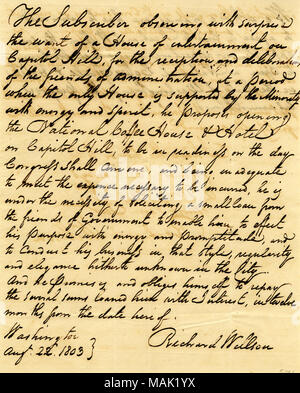 The Subscriber observing with surprize
the want of a House of entertainment on
Capitol Hill, for the reception and deliberation
of the friends of administration, at a period
when the only House is supported by the Minority
with energy and Spirit, he proposes opening
the National Coffee House & Hotel
on Capitol Hill, to be in readiness on the day
Congress shall convene, and being inadequate
to meet the expence necessary to be incurred, he is
under the necessity of soliciting a small loan from
the friends of Government to enable him, to effect
his Purpose with energy and Promptitude, and
to conduct his business in that style, regularity
and elegance hitherto unknown in the City.
And he Promises and obliges himself to repay
the several sums loaned him with interest, in twelve
months from the date here of.
Washington
Augt. 22. 1803 }
Richard Willson
alamy
alamy stock photo
MAK1YX
www.alamy.com